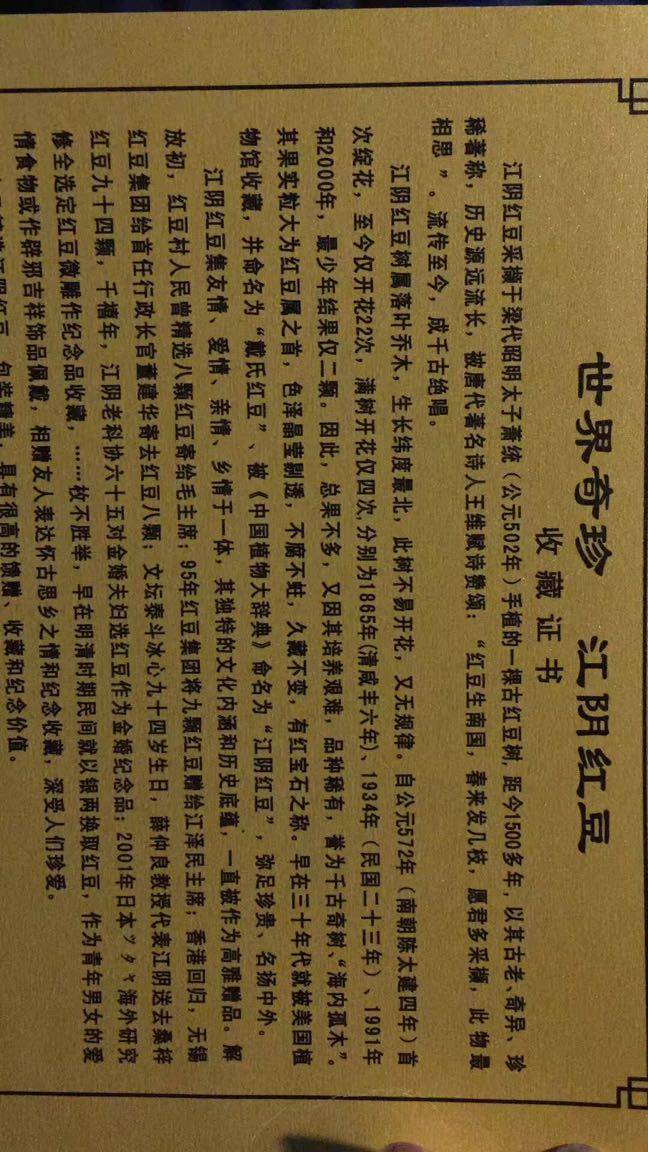 世界奇珍 江阴红豆
收藏证书
江阴红豆采撷于梁代昭明太子萧统（公元502年）手植的一棵古红豆树，距今1500多年，以其古老、奇异、珍
稀著称，历史源远流长，被唐代著名诗人王维赋诗赞颂：“红豆生南国，春来发几枝，愿君多采撷，此物最
相思”。流传至今，成千古绝唱。
江阴红豆树属落叶乔木，生长纬度最北，此树不易开花，又无规律。自公元572年（南朝陈太建四年）首
次绽花，至今仅开花22次，满树开花仅四次，分别为1865年（清咸丰六年）、1934年（民国二十三年）、1991年
和2000年，最少年结果仅二颗。因此，总果不多，又因其培养艰难，品种稀有，誉为千古奇树、“海内孤木”。
其果实粒大为红豆属之首，色泽晶莹剔透，不腐不蛀，久藏不变，有红宝石之称。早在三十年代就被美国植
物馆收藏，并命名为“戴氏红豆”、被《中国植物大辞典》命名为“江阴红豆”，弥足珍贵、名扬中外。
江阴红豆集友情、爱情、亲情、乡情于一体，其独特的文化内涵和历史底蕴，一直被作为高雅赠品。解
放初，红豆村人民曾精选八颗红豆寄给毛主席；95年红豆集团将九颗红豆赠给江泽民主席；香港回归，无锡
红豆集团给首任行政长官董建华寄去红豆八颗；文坛泰斗冰心九十四岁生日，薛仲良教授代表江阴送去桑梓
红豆九十四颗，千禧年，江阴老科协六十五对金婚夫妇选红豆作为金婚纪念品；2001年日本ツタヤ海外研究
修全选定红豆微雕作纪念品收藏，……枚不胜举，早在明清时期民间就以银两换取红豆，作为青年男女的爱
情食物或作辟邪吉祥饰品佩戴，相赠友人表达怀古思乡之情和纪念收藏，深受人们珍爱。
江阴红豆，包装精美，具有很高的馈赠、收藏和纪念价值。